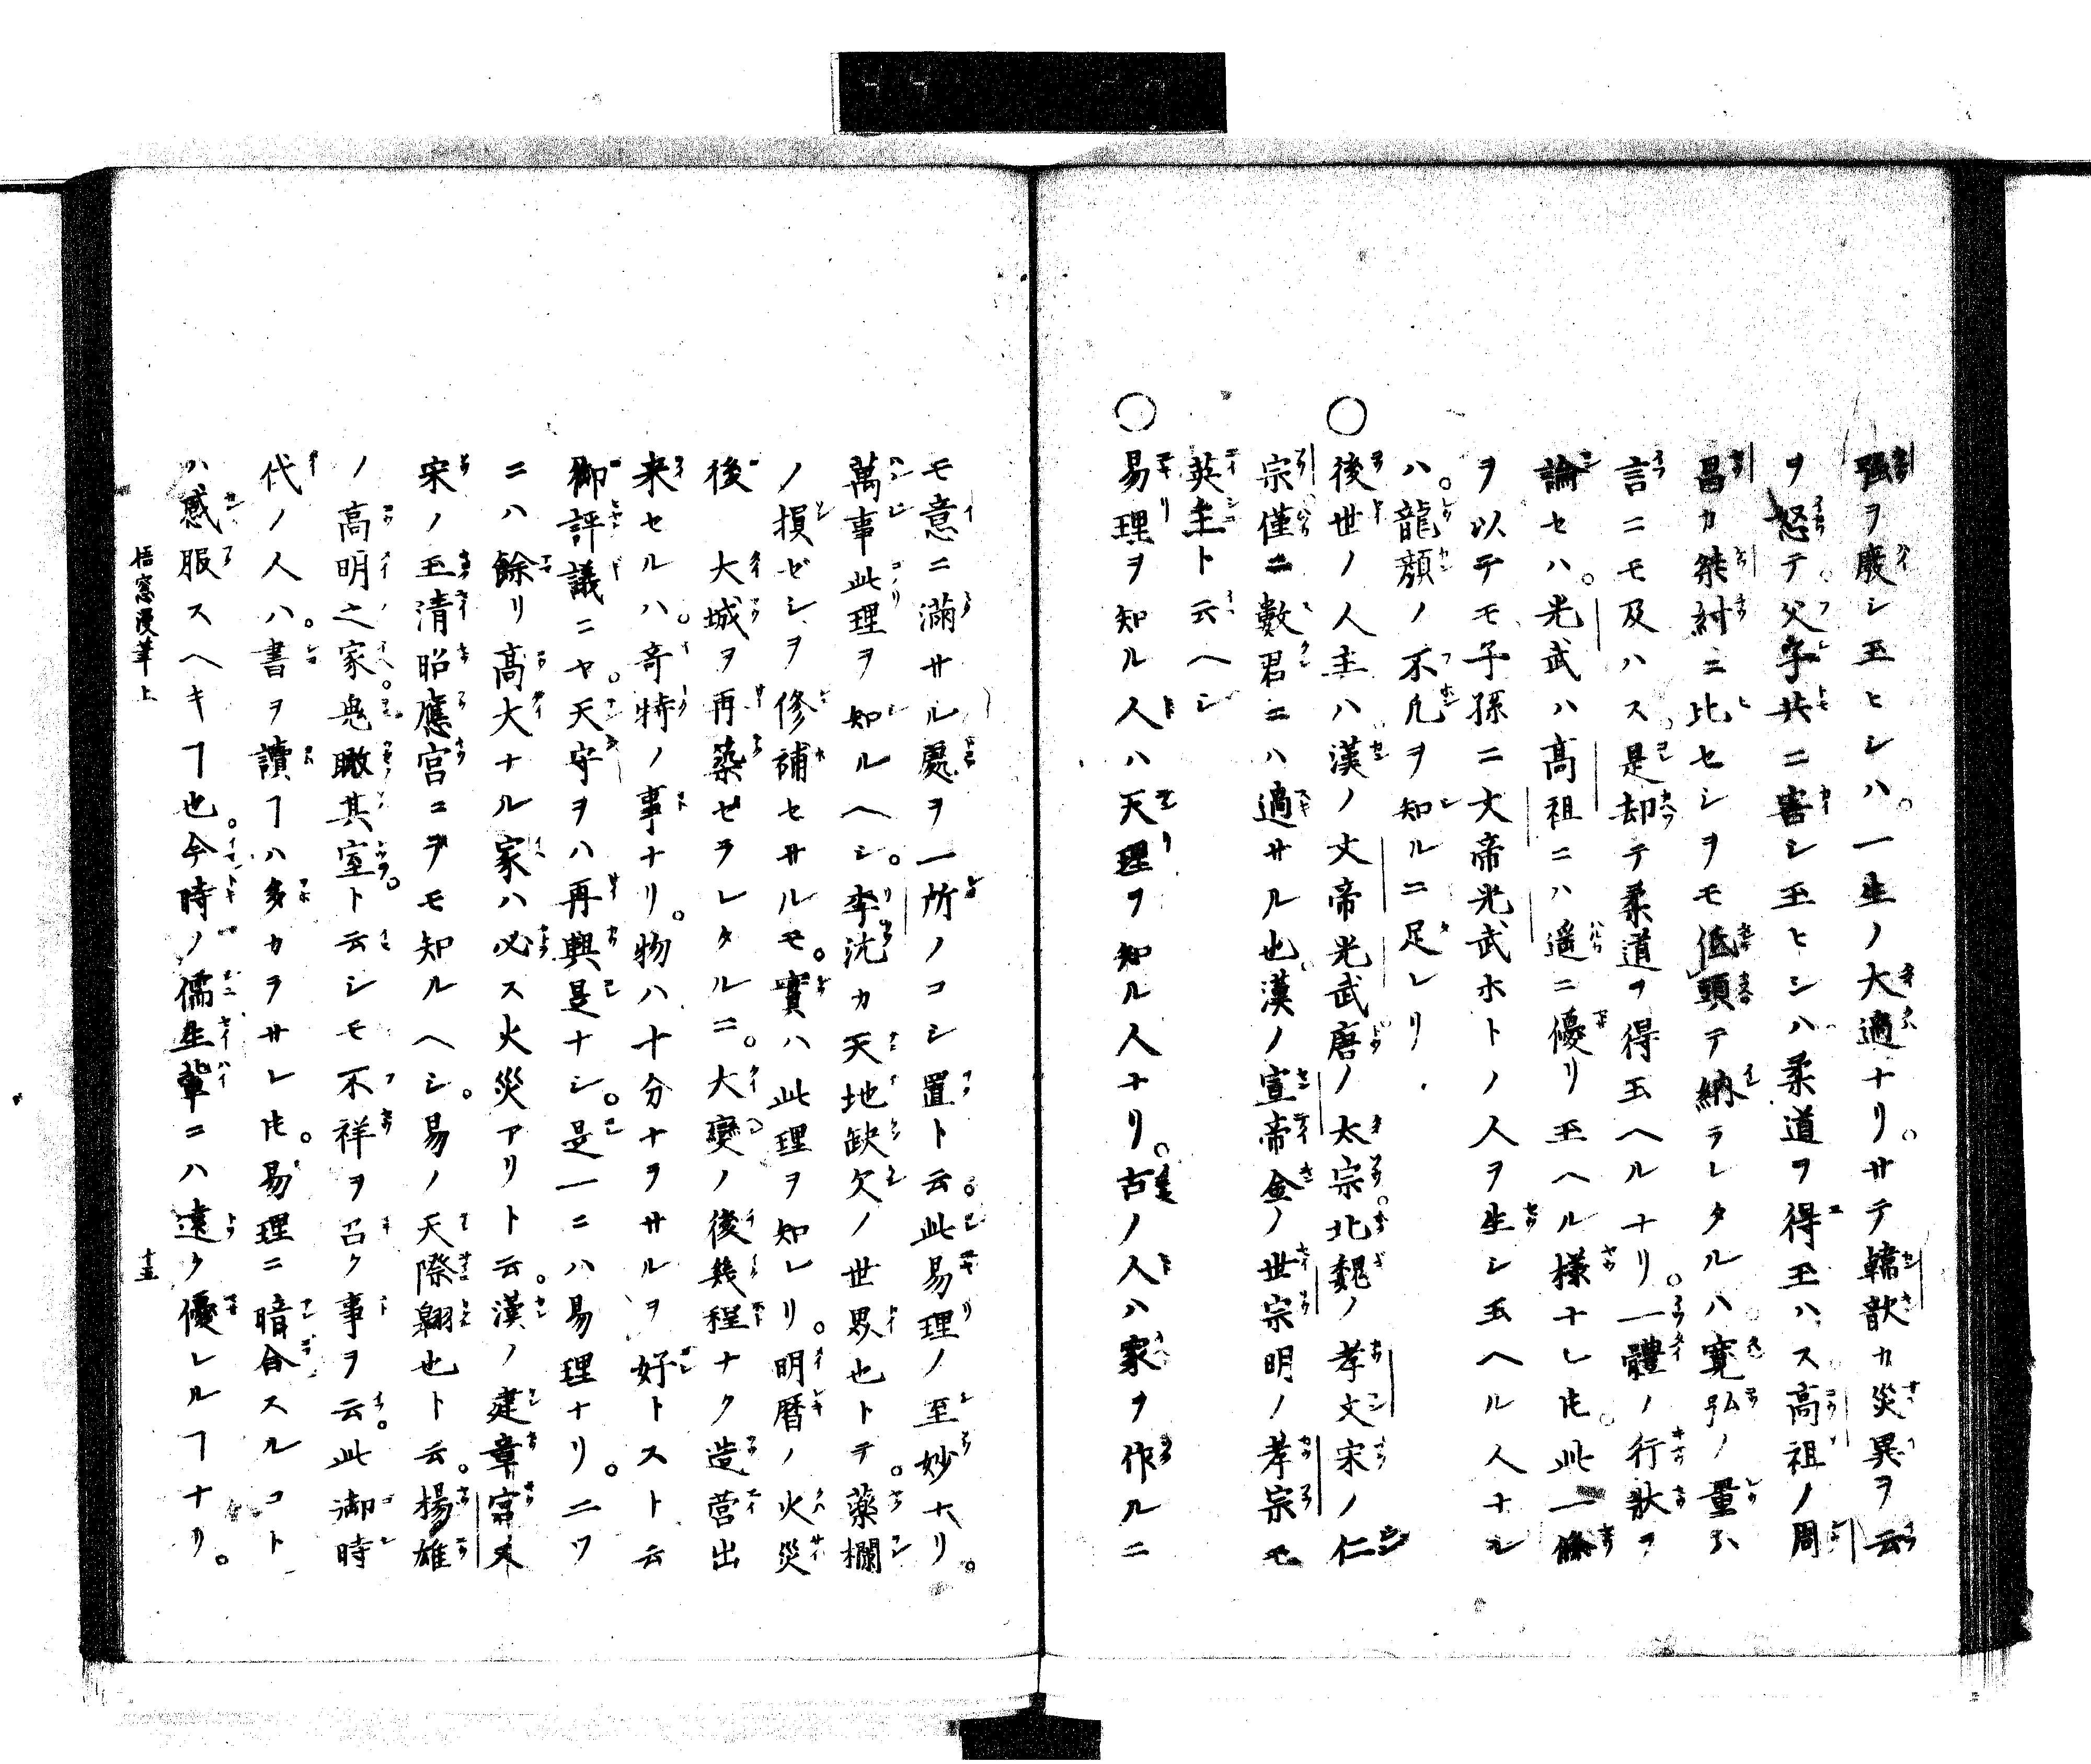 彊ヲ廢シ玉ヒシハ。一生ノ大過ナリ。サテ韓歆カ災異ヲ云
ヲ怒テ。父子共ニ害シ玉ヒシハ柔道ヲ得玉ハス高祖ノ周
昌カ桀紂ニ比セシヲモ低頭テ納ラレタルハ寛弘ノ量ハ
言ニモ及ハス是却テ柔道ヲ得玉ヘルナリ。一體ノ行狀ヲ
論セハ。光武ハ高祖ニハ遥ニ優リ玉ヘル様ナレ𪜈。此一條
ヲ以テモ子孫ニ文帝光武ホトノ人ヲ生シ玉ヘル人ナレ
ハ。龍顔ノ不凡ヲ知ルニ足レリ
○後世ノ人主ハ漢ノ文帝光武唐ノ太宗。北魏ノ孝文宋ノ仁
宗僅ニ數君ニハ過サル也漢ノ宣帝金ノ世宗明ノ孝宗モ
英主ト云ヘシ
○易理ヲ知ル人ハ天理ヲ知ル人ナリ。古ノ人ハ家ヲ作ルニ
モ意ニ滿サル處ヲ一所ノコシ置ト云。此易理ノ至妙ナリ。
萬事此理ヲ知ルヘシ。李沆カ天地缺欠ノ世界也トテ。藥欄
ノ損ゼシヲ修補セサルモ。實ハ此理ヲ知レリ。明曆ノ火災
後　大城ヲ再築ゼラレタルニ。大變ノ後幾程ナク造営出
来セルハ。奇特ノ事ナリ。物ハ十分ナヲサルヲ好トスト云
御評議ニヤ。天守ヲハ再興是ナシ。是一ニハ易理ナリ。二ツ
ニハ餘リ高大ナル家ハ必ス火災アリト云。漢ノ建章宮又
宋ノ玉清昭應宮ニヲモ知ルヘシ。易ノ天際翔也ト云。楊雄
ノ高明之家。鬼瞰其室。ト云シモ不祥ヲ召ク事ヲ云。此御時
代ノ人ハ。書ヲ讀ヿハ多カラサレ𪜈。易理ニ暗合スルコト
ハ感服スヘキヿ也。今時ノ儒生輩ニハ遠ク優レルヿナリ。
梧窓漫筆上　十五